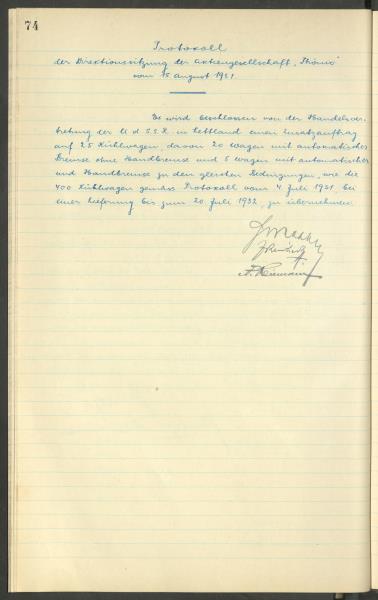 74
Protokoll
der Direktionssitzung der Aktiengesellschaft „Phönix"
vom 15 August 1931
Es wird beschlossen von der Handelsver-
tretung der U d S.S.R. in Lettland einen Zusatzauftrag
auf 25 Kühlwagen, davon 20 Wagen mit automatischer
Bremse ohne Handbremse und 5 Wagen mit automatischer
und Handbremse zu den gleichen Bedingungen, wie die
400 Kühlwagen gemäss Protokoll vom 4 Juli 1931 bei
einer Lieferung bis zum 20 Juli 1932, zu übernehmen.